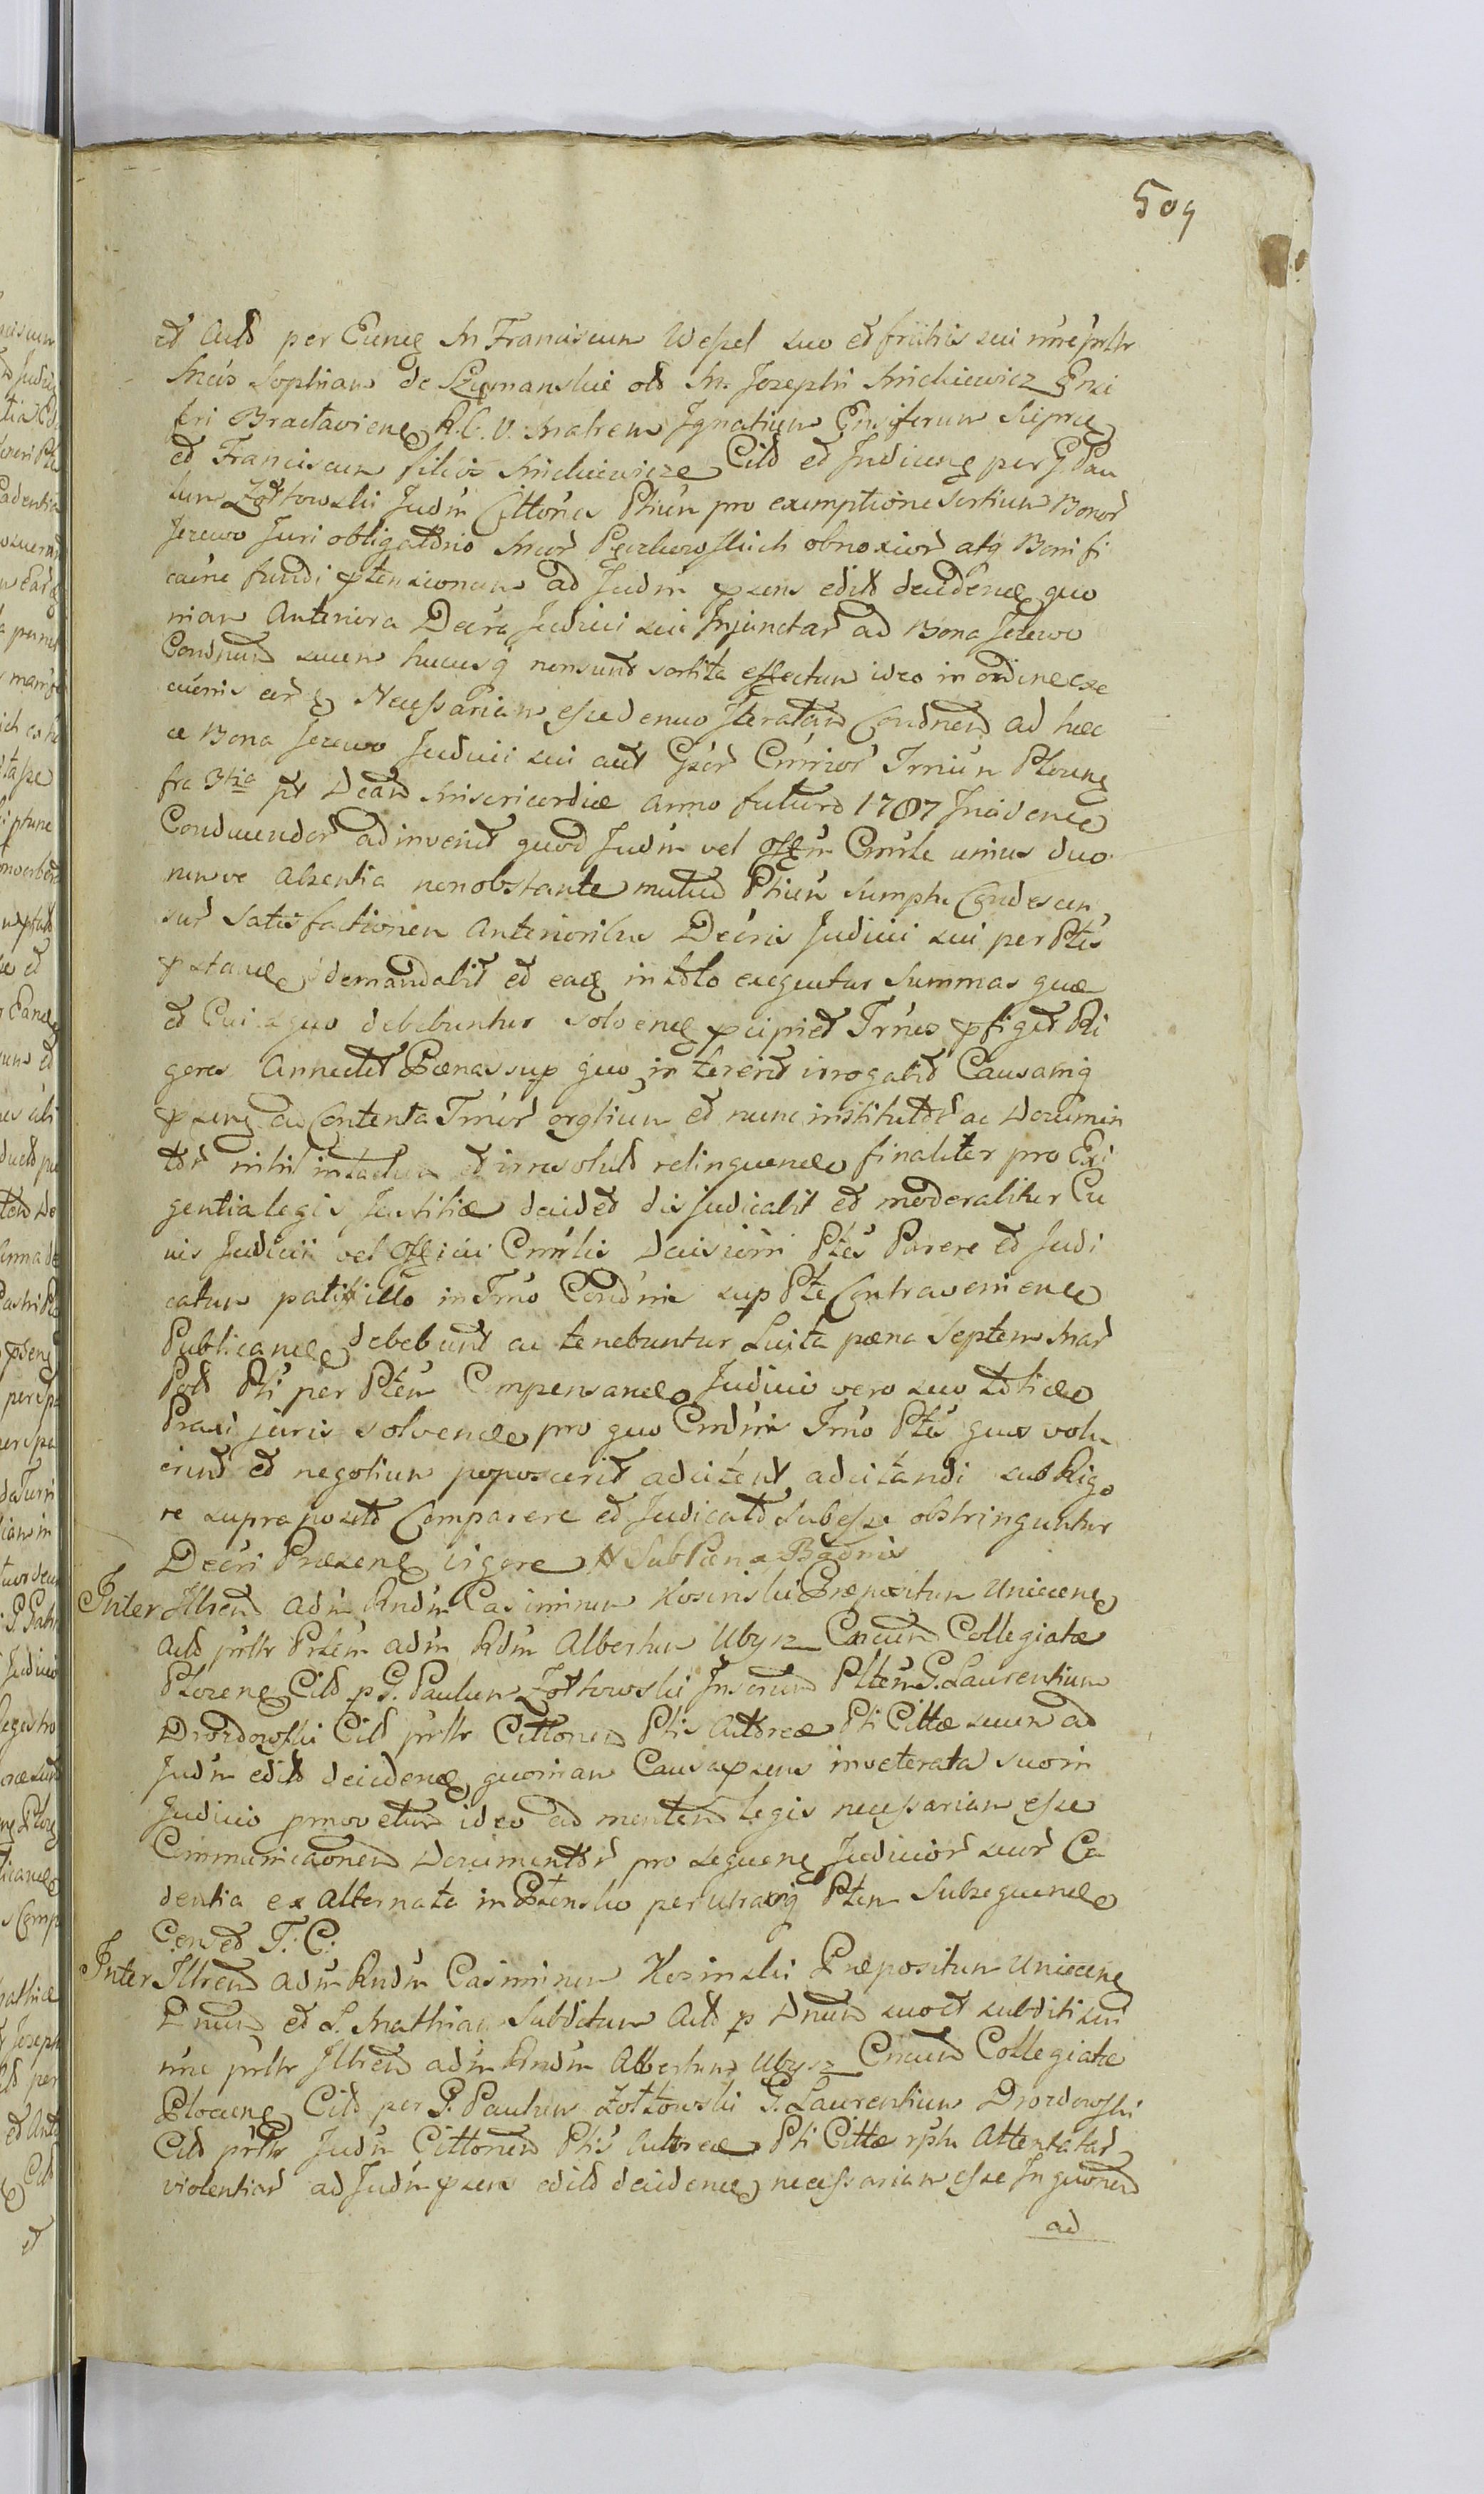 509
et Actd per Eumq M Franciscum Wessel suo et frūtris sui nrne prlr
Mcas Sophiam de Szymanskie olt M. Josephi Mickiewicz Ensi
feri Bractaviens R.C.V. Matrem Ignatium Ensiferum Sieprcs
et Franciscum filios Mickiewicze Citd et Judicens per G. Pau
lum Zołtowski Judm Cittones Ptium pro exemptione sortium Bonor
Jezewo Juri obligattorio Mcor Pęczkowskich obnoxior atq Bonifi
caōne fundi ptensionum ad Judm psens editt decidens quo
niam Anteriora Decra Judicii sui Injunctar ad Bona Jezewo
Condnum suum hucusq non sunt sortita effectum ideo in ordine exe
cuōnis eor Necessariam esse denuo Iteratam Condnem ad haec
ce Bona Jezewo Judicii sui aut Gsor Cmrior Trniūm Plocens
fra 3tia pt Dcam Misericordiae Anno futuro 1787 Incidens
Conducendor adinvenit quod Judm vel Offm Cmrle unius duo
rumve absentia non obstante mutuo Ptium Sumptu Condescen
sur Satisfactionem Anterioribus Decris Judicii sui per Ptes
pstans demandabit et eaq in toto exequtur Summas quae
et Cui a quo debebuntur solvens pcipiet Trnos pfiget Ri
gores Annectet Poenas sup quo interent irrogabit Causamq
psens ac Contenta Trnor orgliūm et nunc institutor ac Documen
tor nihil intactum et irresolutd relinquens finaliter pro Exi
gentia legis Justitiae decidet disjudicabit et moderabitur Cu
jus Judicii vel Officii Cmrlis Decisioni Ptes Parere et Judi
catum pati illo in Trno Condnm sup Pte Contraveniens
Publicans debebunt ac tenebuntur Luita paena Septem Mar
Pol Pti per Ptem Compensans Judicio vero suo toties
Praxi juris solvens pro quo Cmdnm Trno Ptes quos volu
erint et negotium poposcerit adcitent adcitandi sub Rigo
re supraposito Comparere et Judicato Subesse obstringuntur
Decri Praesens vigore Sub Paena Bannis
Inter Illrem adm Rndm Casimirum Kosinski Praepositum Uniecens
Actd prlr Ptem adm Rdm Albertum Ubysz Cncum Collegiatae
Plocens Citd p G. Paulum Zołtowski Inserum Pltem G. Laurentium
Drozdowski Citd prlr Cittonem Ptis Actoreae Pti Cittae suum ad
Judm editt decidens quoniam Causa psens inveterata suo in
Judicio pmovetur ideo ad mentem legis necessariam esse
Communicaonem Documentor pro sequens Judicior suor Ca
dentia ex Alternata in Ptensuo per utramq Ptem Subsequens
Censet T: C:
Inter Illrem adm Rndm Casimirum Kosinski Praepositum Uniecens
Dnum et L. Mathiam Subditum Actd p Dnum suo et subditi sui
nrne prlr Illrem adm Rndm Albertum Ubysz Cncum Collegiatae
Plocens Citd per G. Paulum Zołtowski G. Laurentium Drozdowski
Citd prlr Judm Cittonem Ptis Actoreae Pti Cittae rptu Attentatar
violentiar ad Judm psens editt decidens necessariam esse Inquonem
ad